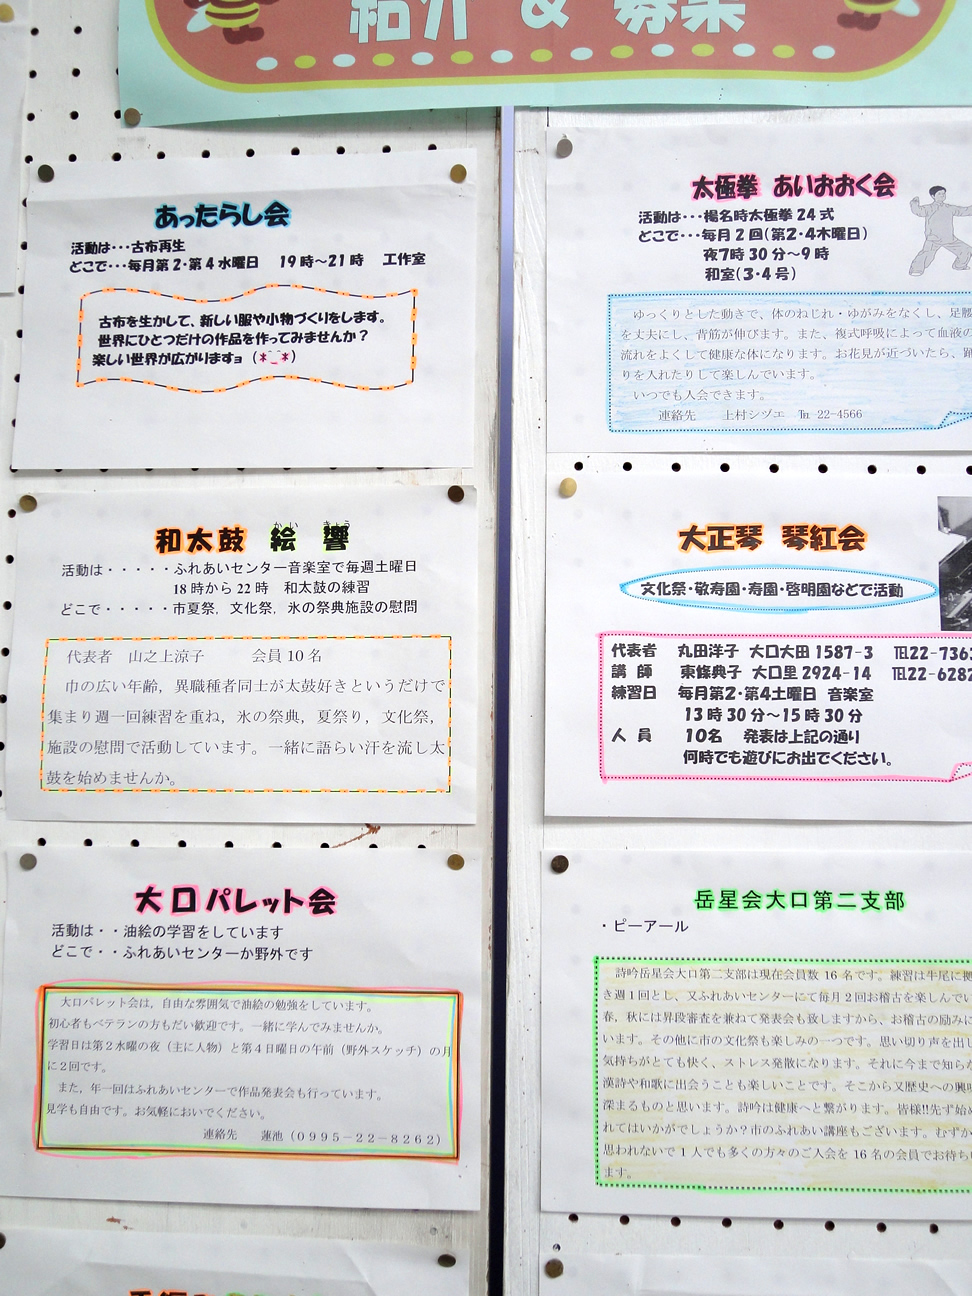 紹介 & 募集
あったらし会
活動は･･･古布再生
どこで･･･毎月第2･第4水曜日 19時～21時 工作室
古布を生かして、新しい服や小物づくりをします。
世界にひとつだけの作品を作ってみませんか？
楽しい世界が広がりますョ（*^_^*）
和太鼓 絵響
かい きょう
活動は・・・・・ふれあいセンター音楽室で毎週土曜日
18時から22時 和太鼓の練習
どこで・・・・・市夏祭，文化祭，氷の祭典施設の慰問
代表者 山之上涼子 会員10名
巾の広い年齢，異職種者同士が太鼓好きというだけで
集まり週一回練習を重ね，氷の祭典，夏祭り，文化祭，
施設の慰問で活動しています。一緒に語らい汗を流し太
鼓を始めませんか。
大口パレット会
活動は・・油絵の学習をしています
どこで・・ふれあいセンターか野外です
大口パレット会は，自由な雰囲気で油絵の勉強をしています。
初心者もベテランの方もだい歓迎です。一緒に学んでみませんか。
学習日は第２水曜の夜（主に人物）と第４日曜日の午前（野外スケッチ）の月
に２回です。
また，年一回はふれあいセンターで作品発表会も行っています。
見学も自由です。お気軽においでください。
連絡先 蓮池（0995－22－8262）
太極拳 あいおおく会
活動は･･･楊名時太極拳24式
どこで･･･毎月2回(第2･4木曜日)
夜7時30分～9時
和室(3･4号)
ゆっくりとした動きで、体のねじれ・ゆがみをなくし、足腰
を丈夫にし、背筋が伸びます。また、複式呼吸によって血液の
流れをよくして健康な体になります。お花見が近づいたら、踊
りを入れたりして楽しんでいます。
いつでも入会できます。
連絡先 上村シヅエ ℡22-4566
大正琴 琴紅会
文化祭･敬寿園･寿園･啓明園などで活動
代表者 丸田洋子 大口大田1587-3 ℡22-7363
講師 東條典子 大口里2924-14 ℡22-6282
練習日 毎月第2･第4土曜日 音楽室
13時30分～15時30分
人員 10名 発表は上記の通り
何時でも遊びにお出でください。
岳星会大口第二支部
・ピーアール
詩吟岳星会大口第二支部は現在会員数16名です。練習は牛尾に拠
き週1回とし、又ふれあいセンターにて毎月2回お稽古を楽しんでい
春、秋には昇段審査を兼ねて発表会も致しますから、お稽古の励みに
います。その他に市の文化祭も楽しみの一つです。思い切り声を出し
気持ちがとても快く、ストレス発散になります。それに今まで知らな
漢詩や和歌に出会うことも楽しいことです。そこから又歴史への興味
深まるものと思います。詩吟は健康へと繋がります。皆様!!先ず始め
れてはいかがでしょうか？市のふれあい講座もございます。むずか
思われないで1人でも多くの方々のご入会を16名の会員でお待ち
ます。